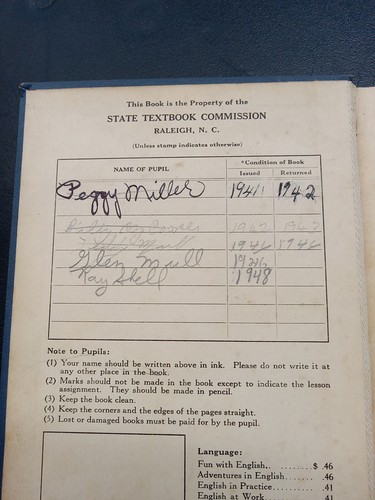 This Book is the Property of the
STATE TEXTBOOK COMMISSION
RALEIGH, N. C.
(Unless stamp indicates otherwise)
NAME OF PUPIL
*Condition of Book
Issued Returned
Peggy Miller 1941 1942
1942
1946 1946
Glen Mull 1946
Kay Shell 1948
Note to Pupils:
(1) Your name should be written above in ink. Please do not write it at
any other place in the book.
(2) Marks should not be made in the book except to indicate the lesson
assignment. They should be made in pencil.
(3) Keep the book clean.
(4) Keep the corners and the edges of the pages straight.
(5) Lost or damaged books must be paid for by the pupil.
Language:
Fun with English.. ........$ .46
Adventures in English....... .46
English in Practice.......... .41
English at Work .41